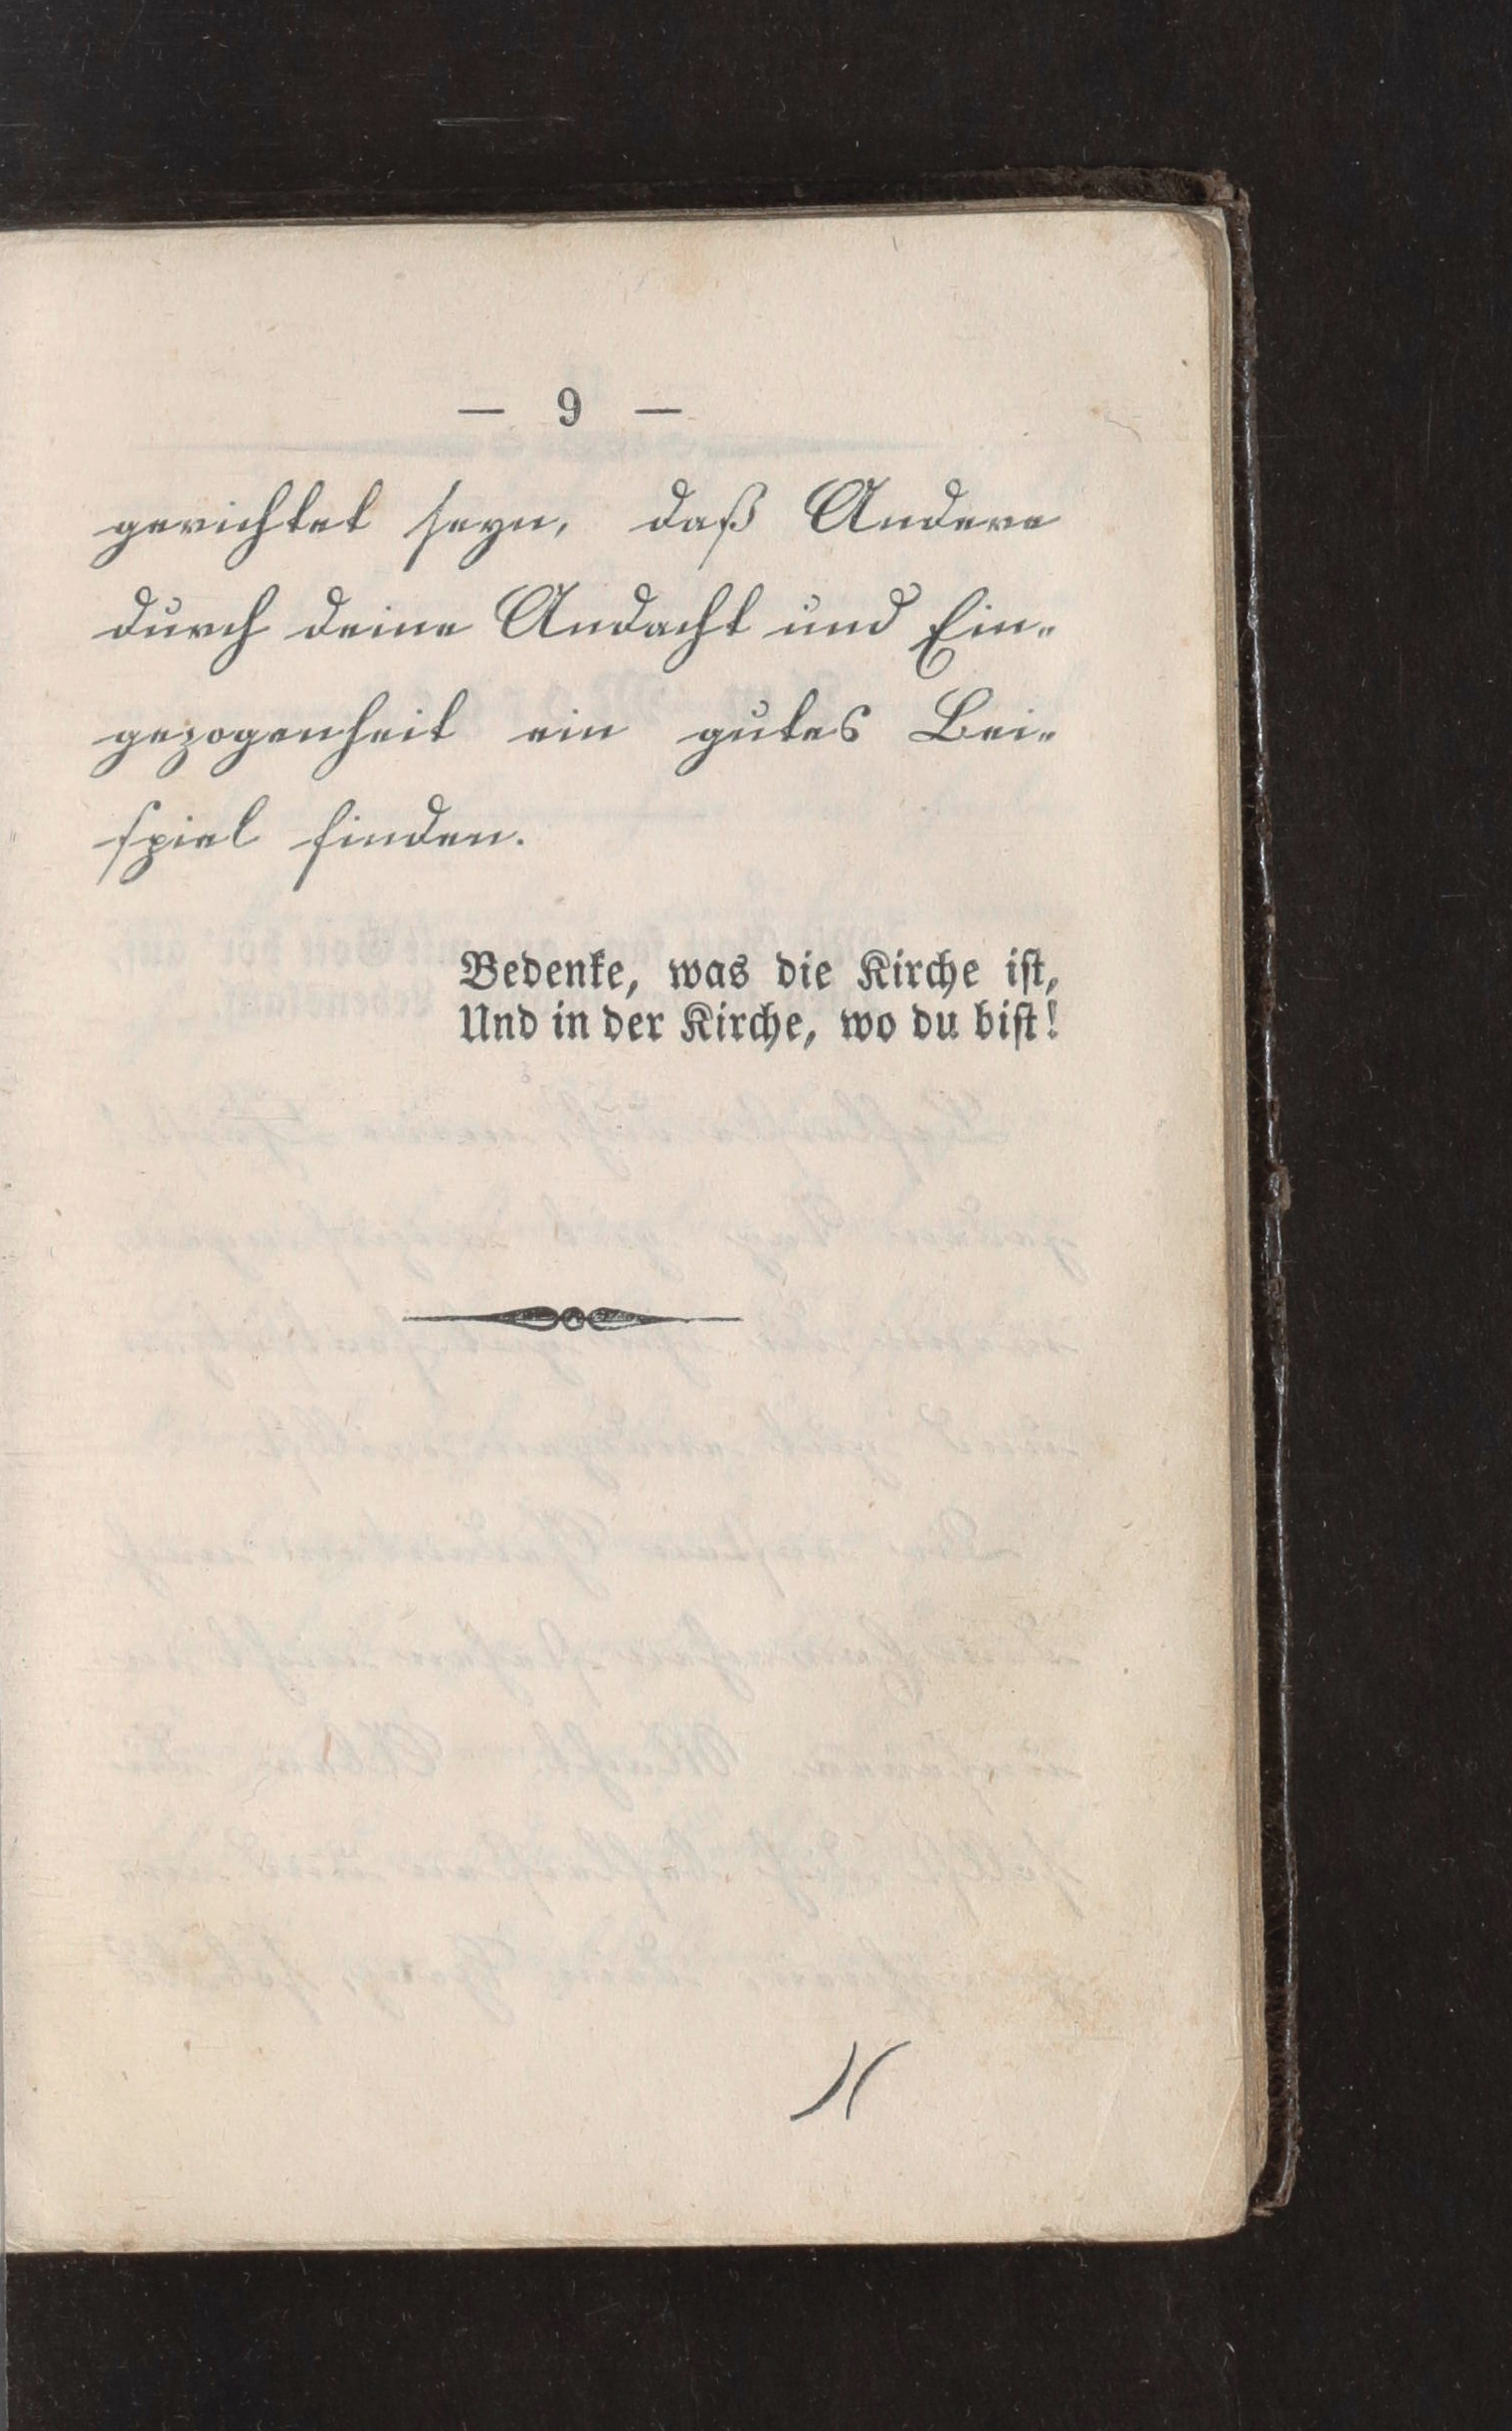 — 9 —
gerichtet seyn, daß Andere
durch deine Andacht und Ein-
gezogenheit ein gutes Bei-
spiel finden.
Bedenke, was die Kirche ist,
Und in der Kirche, wo du bist!